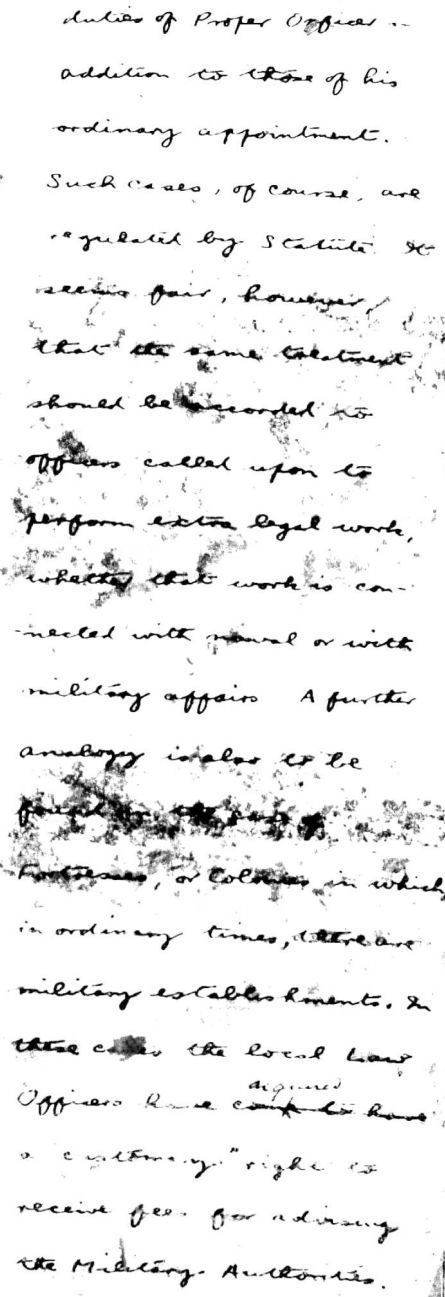 duties of Proper Officer in
addition to those of his
ordinary appointment.
Such cases, of course, are
regulated by Statute. It
seems fair, however,
that the same treatment
should be accorded to
officers called upon to
perform extra legal work,
whether that work is con-
-nected with naval or with
military affairs. A further
analogy is also to be
found in the case of
Fortresses, or Colonies in which,
in ordinary times, there are
military establishments. In
these cases the local Law
Officers have acquired
a "customary" right to
receive fees for advising
the Military Authorities.